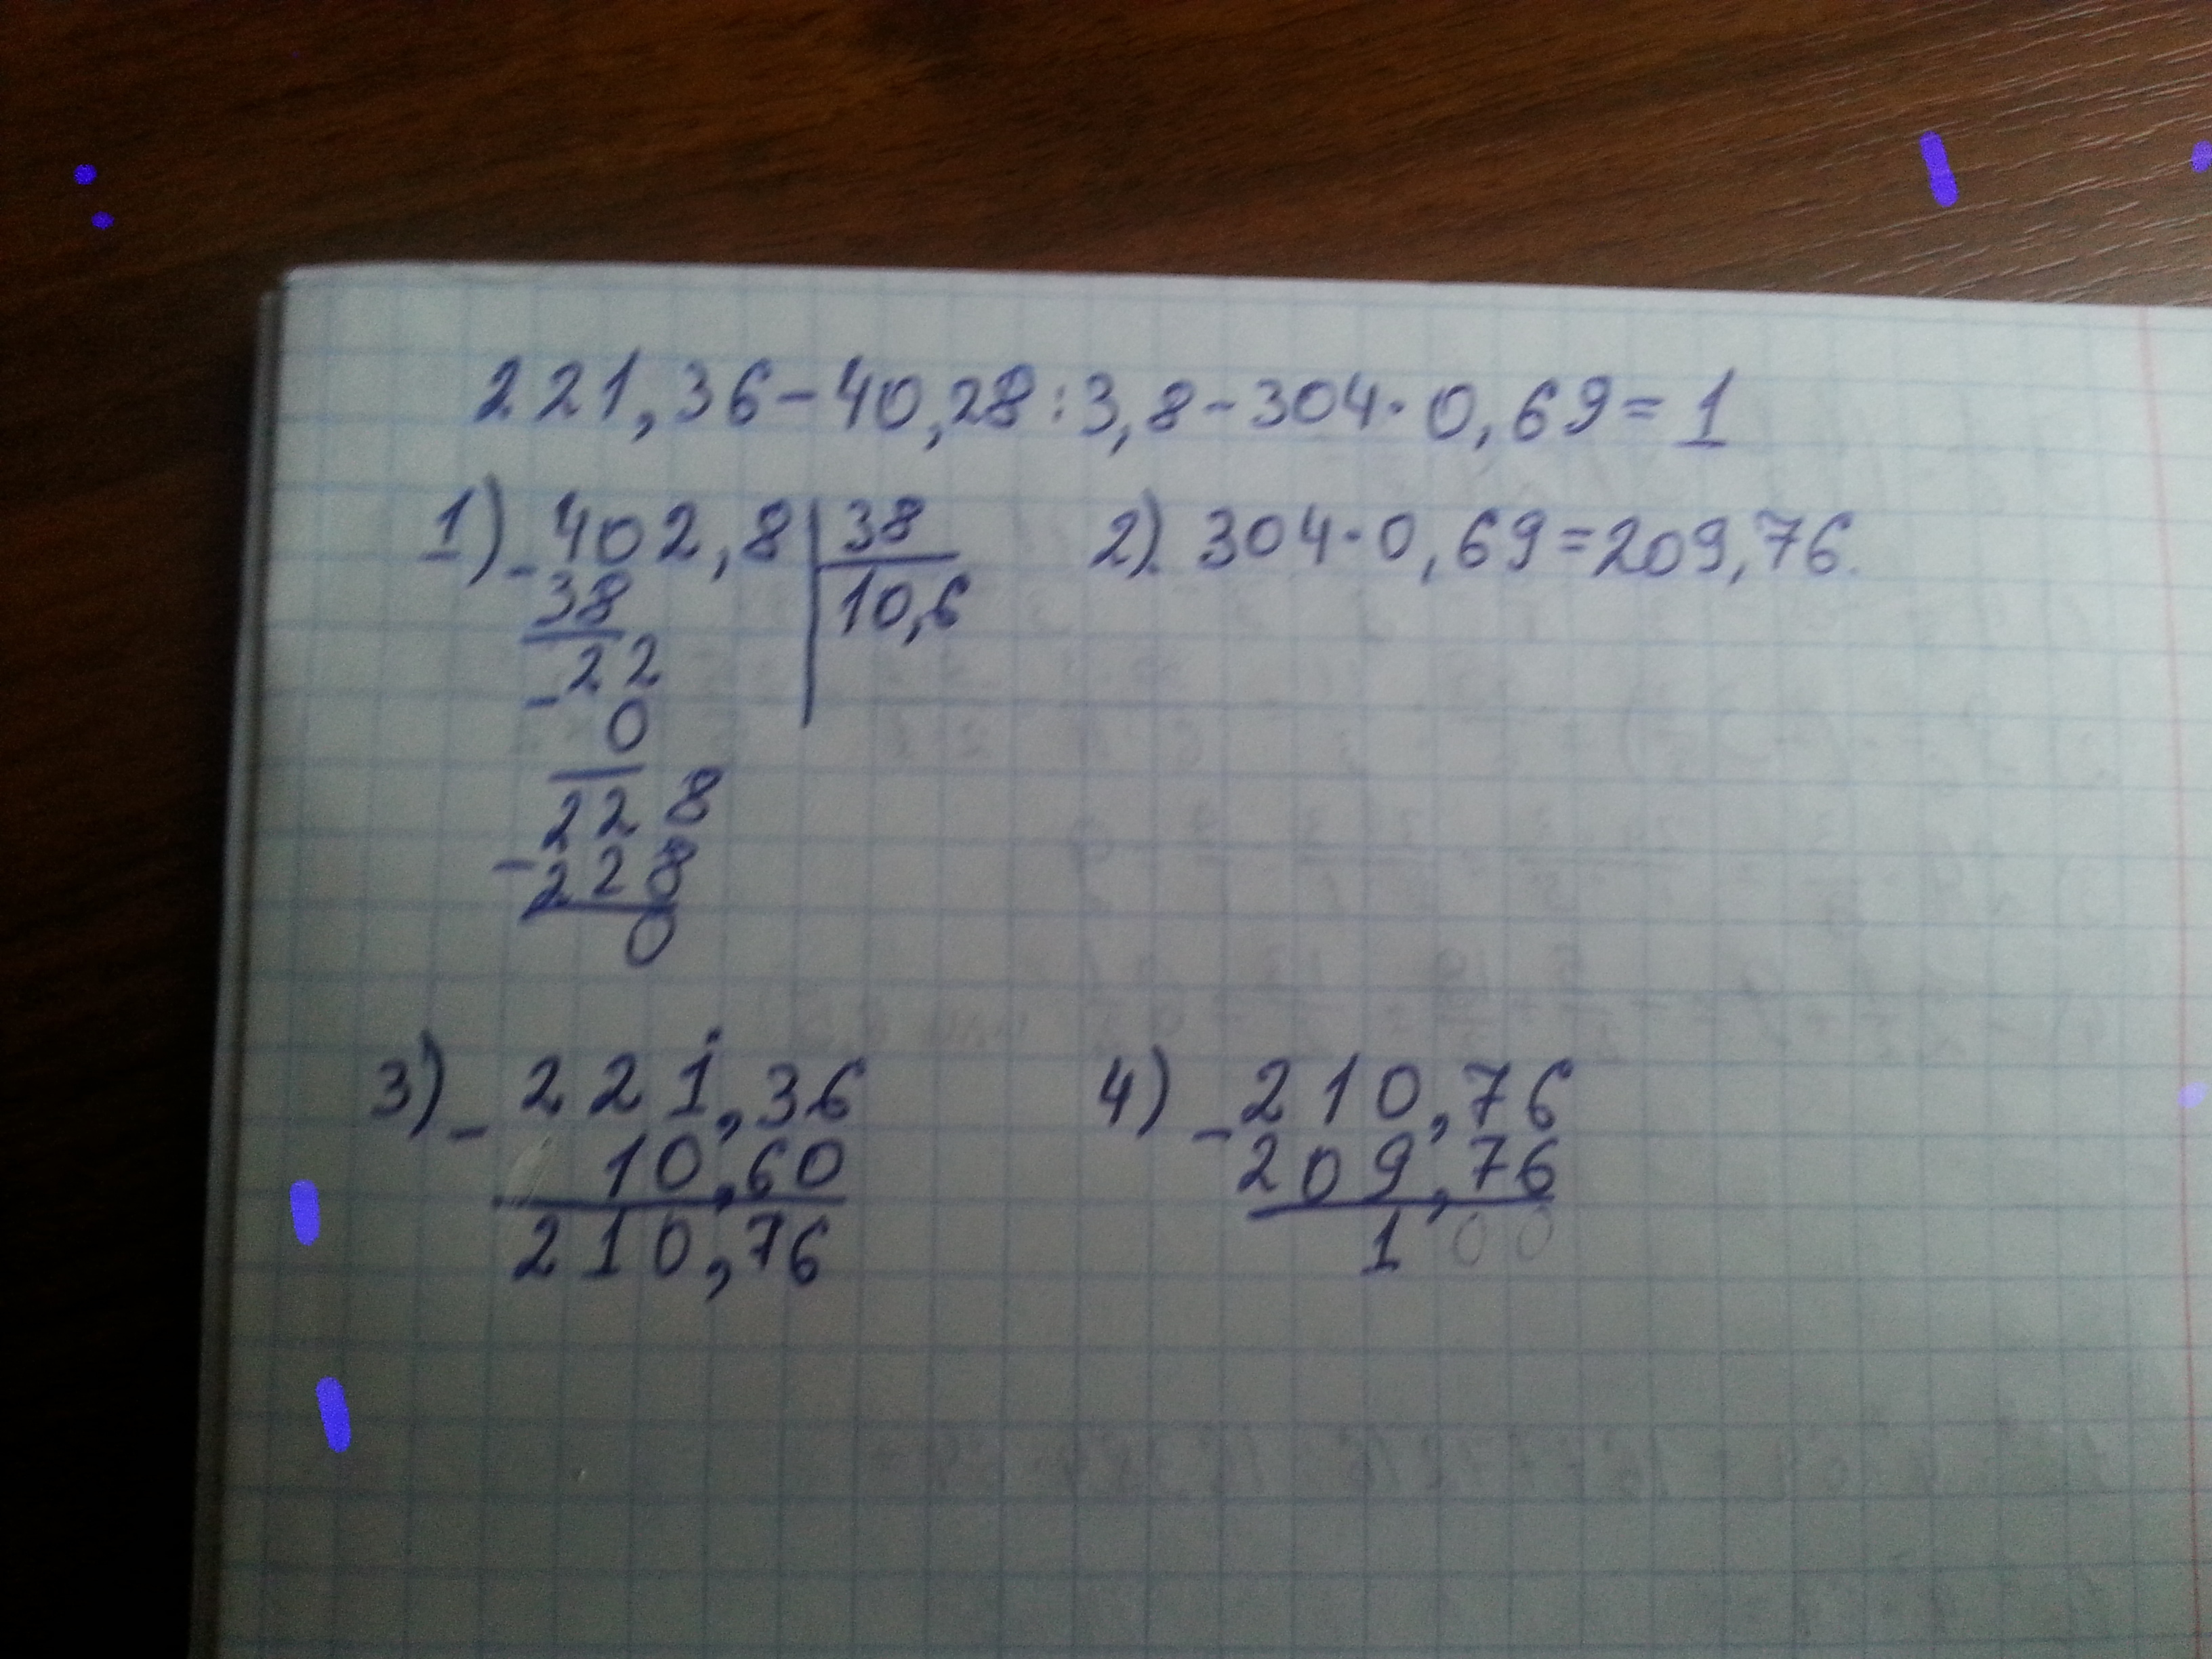 221,36-40,28:3,8-304·0,69=1
1) -402,8 38 2) 304·0,69=209,76.
38 10,6
-22
0
228
-228
0
3) - 221,36 4) - 210,76
10,60 209,76
210,76 1 00